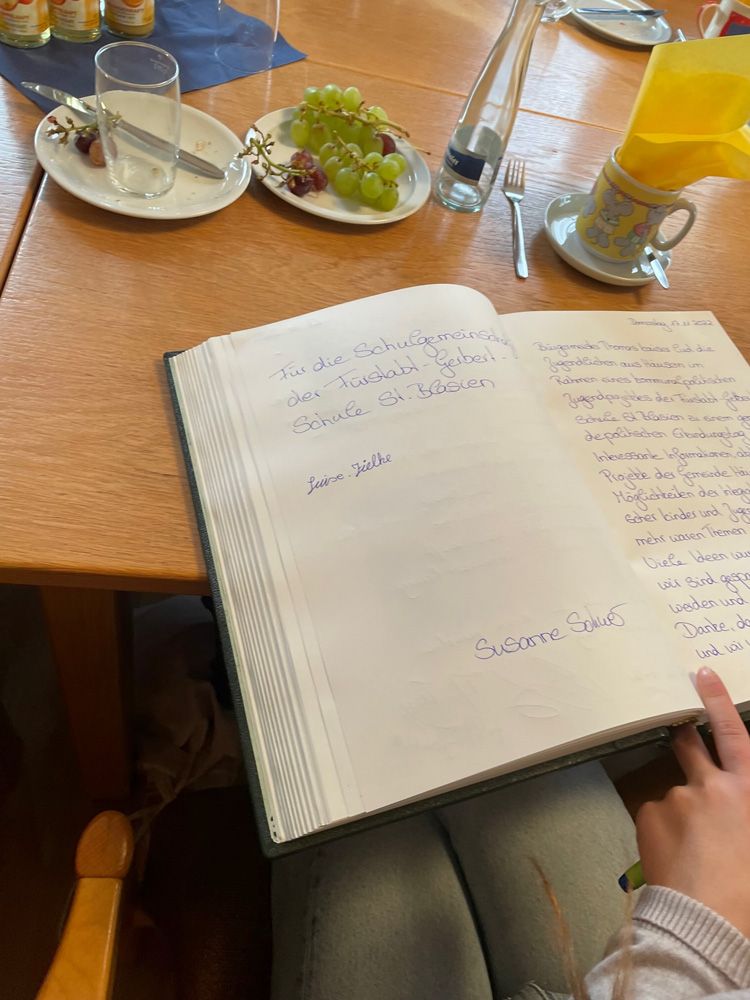 Für die Schulgemeinschaft
der Fürstabt-Gerbert-
Schule St. Blasien
Luise Zielke
Susanne Schuo
Donnerstag, 17.11.2022
Bürgermeister Tremens lud die
Jugendlichen aus Hausen im
Rahmen eines kommunalpolitischen
Jugendprojektes der Fürstabt Gerbe
Schule St. Blasien zu einem ge
depolitischen Erkundungstag
Interessante Informationen, ak
Projekte der Gemeinde Hau
Möglichkeiten der Integ
scher Kinder und Jugen
mehr waren Themen
Viele Ideen wur
wir sind gesp
werden und
Danke, da
und wir